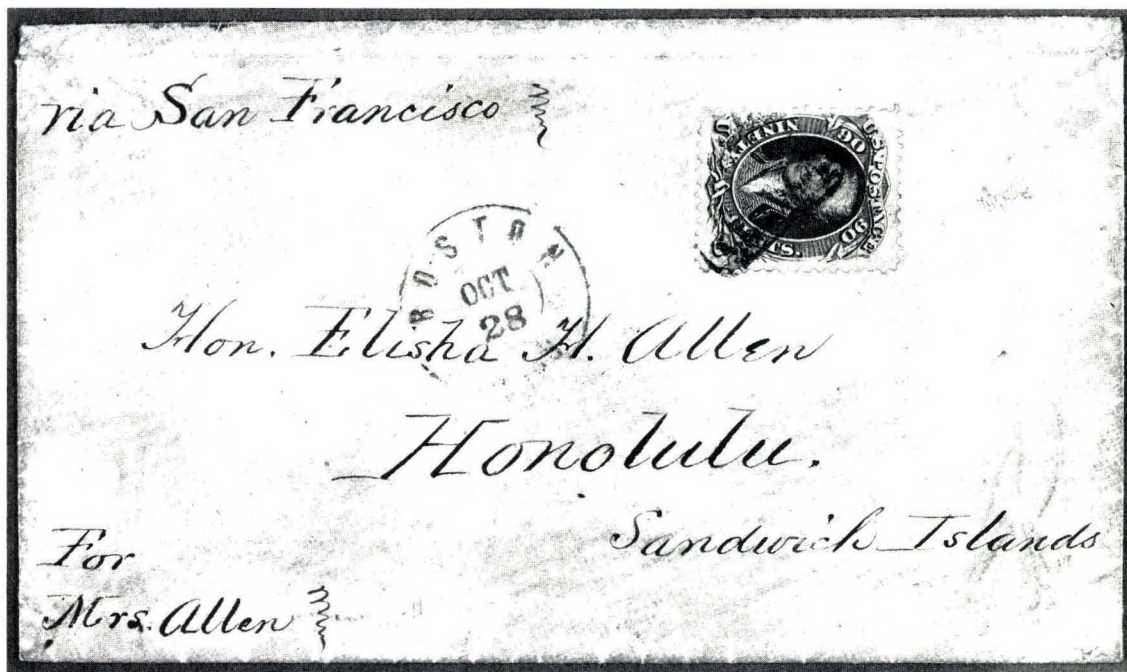 via San Francisco
U.S. POSTAGE
NINETY
90 90
CENTS.
BOSTON
OCT
28
Hon. Elisha H. Allen
Honolulu.
Sandwich Islands
For
Mrs. Allen